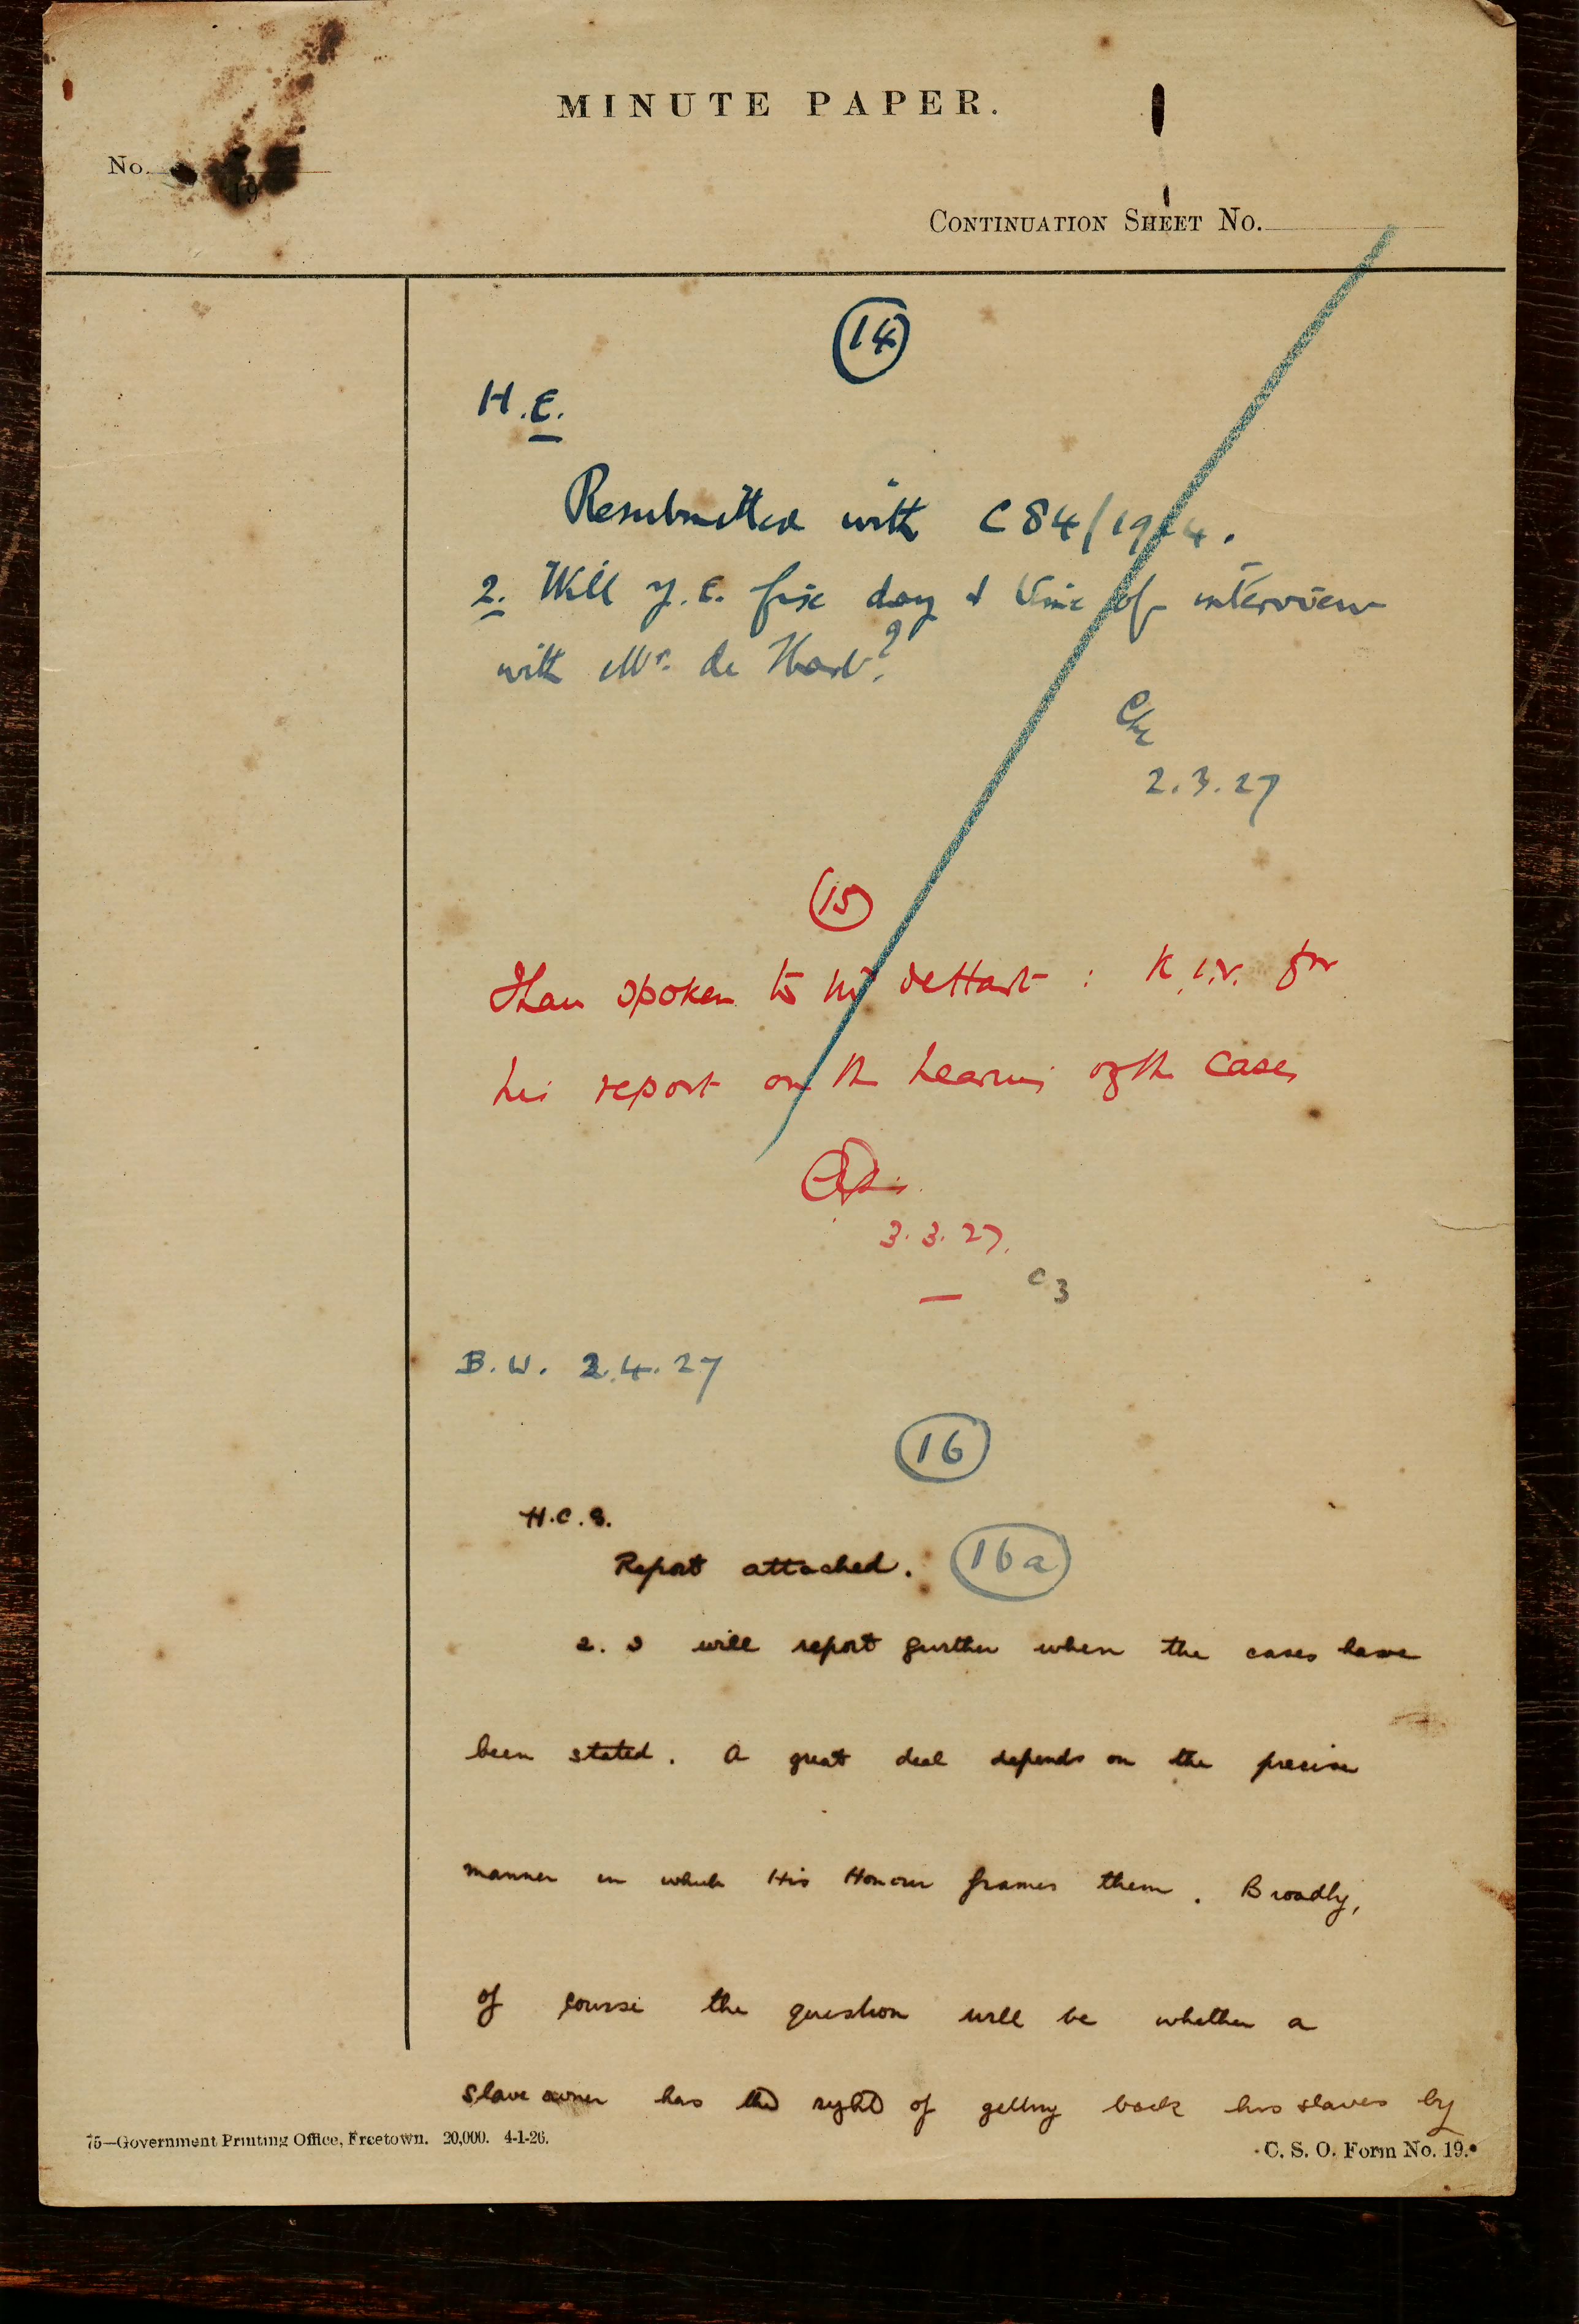 MINUTE PAPER.
No.
19
CONTINUATION SHEET No.
14
H.E.
Resubmitted with C84/1924.
2. Will Y.E. fix day & time of interview
with Mr. de Hart?
2.3.27
15
I have spoken to Mr deHart : K.I.V. for
his report on the hearing of the cases
3.3.27.
C 3
B.W. 2.4.27
16
H.C.S.
Report attached. 16a
2. I will report further when the cases have
been stated. A great deal depends on the precise
manner in which His Honour frames them. Broadly,
of course the question will be whether a
slave owner has the right of getting back his slaves by
75—Government Printing Office, Freetown. 20,000. 4-1-26.
C. S. O. Form No. 19.